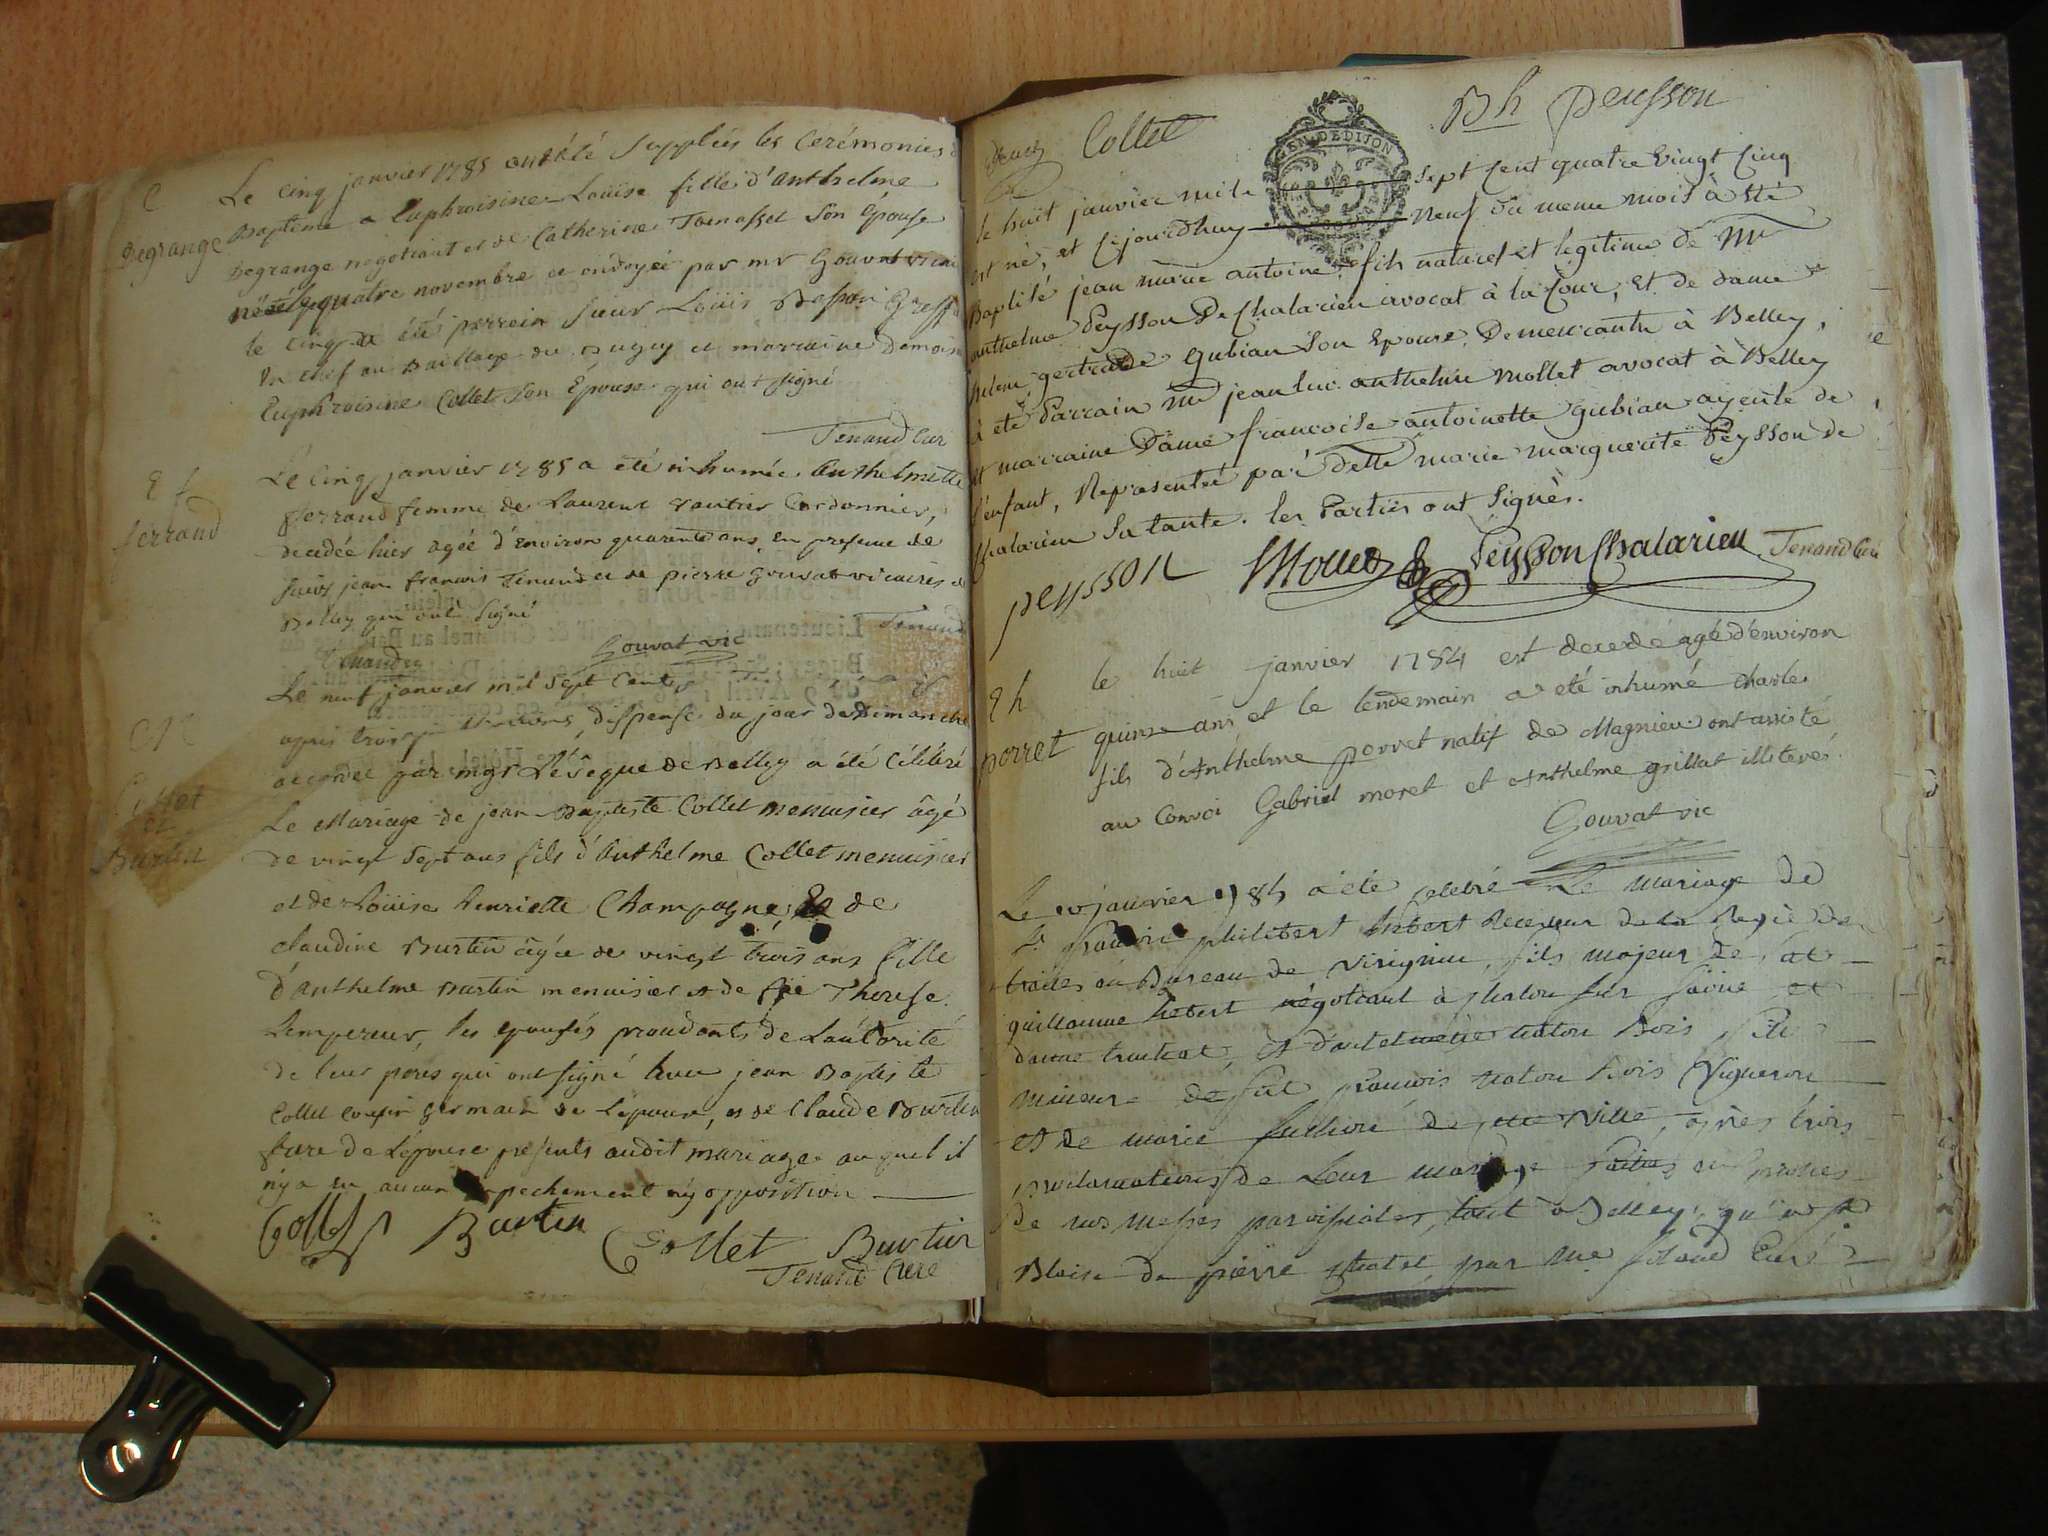 C
Degrange
Le cinq janvier 1785 ont été Suppliés les Cerémonies
Baptême a Euphroisine Louise fille d'anthelme
Degrange negotiant et de Catherine Tornasset Son Epouse
née le quatre novembre et ondoyée par mr Gouvat
le cinq a été perrein Sieur Loüis
En chef au Bailliage du Bugey et marraine Demois
Euphroisine Collet Son Épouse qui ont signé
Tenand Cur
Ef
ferrand
Le Cinq janvier 1785 a été inhumée Anthelmette
ferrand femme de Laurent Gautier Cordonnier,
decedée hier agée d'Environ quarente ans, en presence de
Suirs jean francois Tenand et de pierre Gouvat vicaires
Belley qui ont signé
Tenand
Gouvat vic
CM
Collet
et
Burtin
Le neuf janvier mil Sept Cent
apres trois dispense du jour de Dimanche
accordée par mgr L'évêque de Belley a été Célébré
Le Mariage de jean Baptiste Collet menuisier âgé
de vingt Sept ans fils d'Anthelme Collet menuisier
et de Loüise henriette Champagne Et de
claudine Burtin âgée de vingt trois ans fille
d'anthelme Burtin menuisier et de Therese
Lempereur, les epousés proudants de L'autorité
de leur peres qui ont signé Avec jean Baptiste
Collet cousin germain de L'epoux, et de Claude Burtin
frere de L'épouse presents audit mariage auquel il
n'y a eu aucun Empechement ny opposition
Collet Burtin Collet Burtin
Tenand Curé
Collet
GEN. DE DIJON
Bh peysson
le huit janvier mile sept Cent quatre Vingt Cinq
est né, et cejourdhuy neuf du meme mois à eté
Baptisé jean marie antoine, fils naturel et legitime de Mr
anthelme Peysson De Chalarieu avocat à la Cour, et de dame
gertrude Gubian Son Epouse, Demeurante à Belley,
à eté Parrain Mr jean luc anthelme Mollet avocat à Belley
et marraine Dame francoise antoinette gubian ayeule de
l'enfant, Representée par Delle marie marguerite Peysson de
Chalarieu Sa tante. les Parties ont Signés.
peysson Mollet Peysson Chalarieu Tenand Curé
Eh
porret
le huit janvier 1784 est decedé agé d'environ
quinze ans et le lendemain a été inhumé Charle
fils d'Anthelme porret natif de Magnieu ont assisté
au Convoi Gabriel moret et Anthelme grillat illiterés.
Gouvat vic
Le janvier 1785 a été Celebré Le Mariage de
Sr philibert hebert Receveur de la Regie de
traites au Bureau de Virignin, fils majeur de
guillaume hebert négotiant à Chalon sur Saône et
Bois fille
mineure de fût francois Bois Vigneron
et de marie de cette Ville, après trois
proclamations de Leur mariage faites aux prones
De nos messes paroissiales, tout à Belley, qu'à St
Blaise de pierre Chatel par Mre Curé